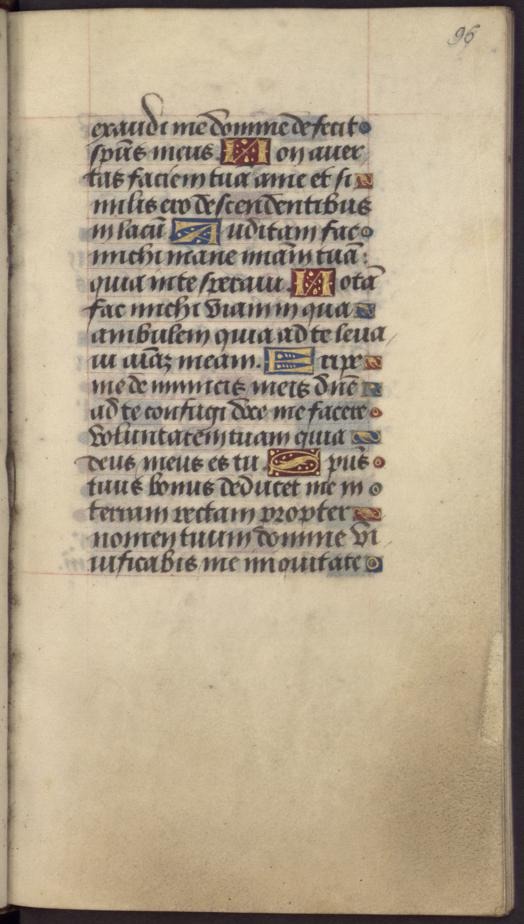 96
exaudi me domine defecit
sp̄us meus Non auer
tas faciem tuā a me et si
milis ero descendentibus
in lacū Auditam fac
michi mane m̄iam tuā:
quia in te speraui. Notā
fac michi viam in qua
ambulem quia ad te leua
ui aīaꝫ meam. Eripe
me de inimicis meis dn̄e
ad te confugi doce me facere
voluntatem tuam quia
deus meus es tu Sp̄us
tuus bonus deducet me in
terram rectam propter
nomen tuum domine vi
uificabis me in ouitate